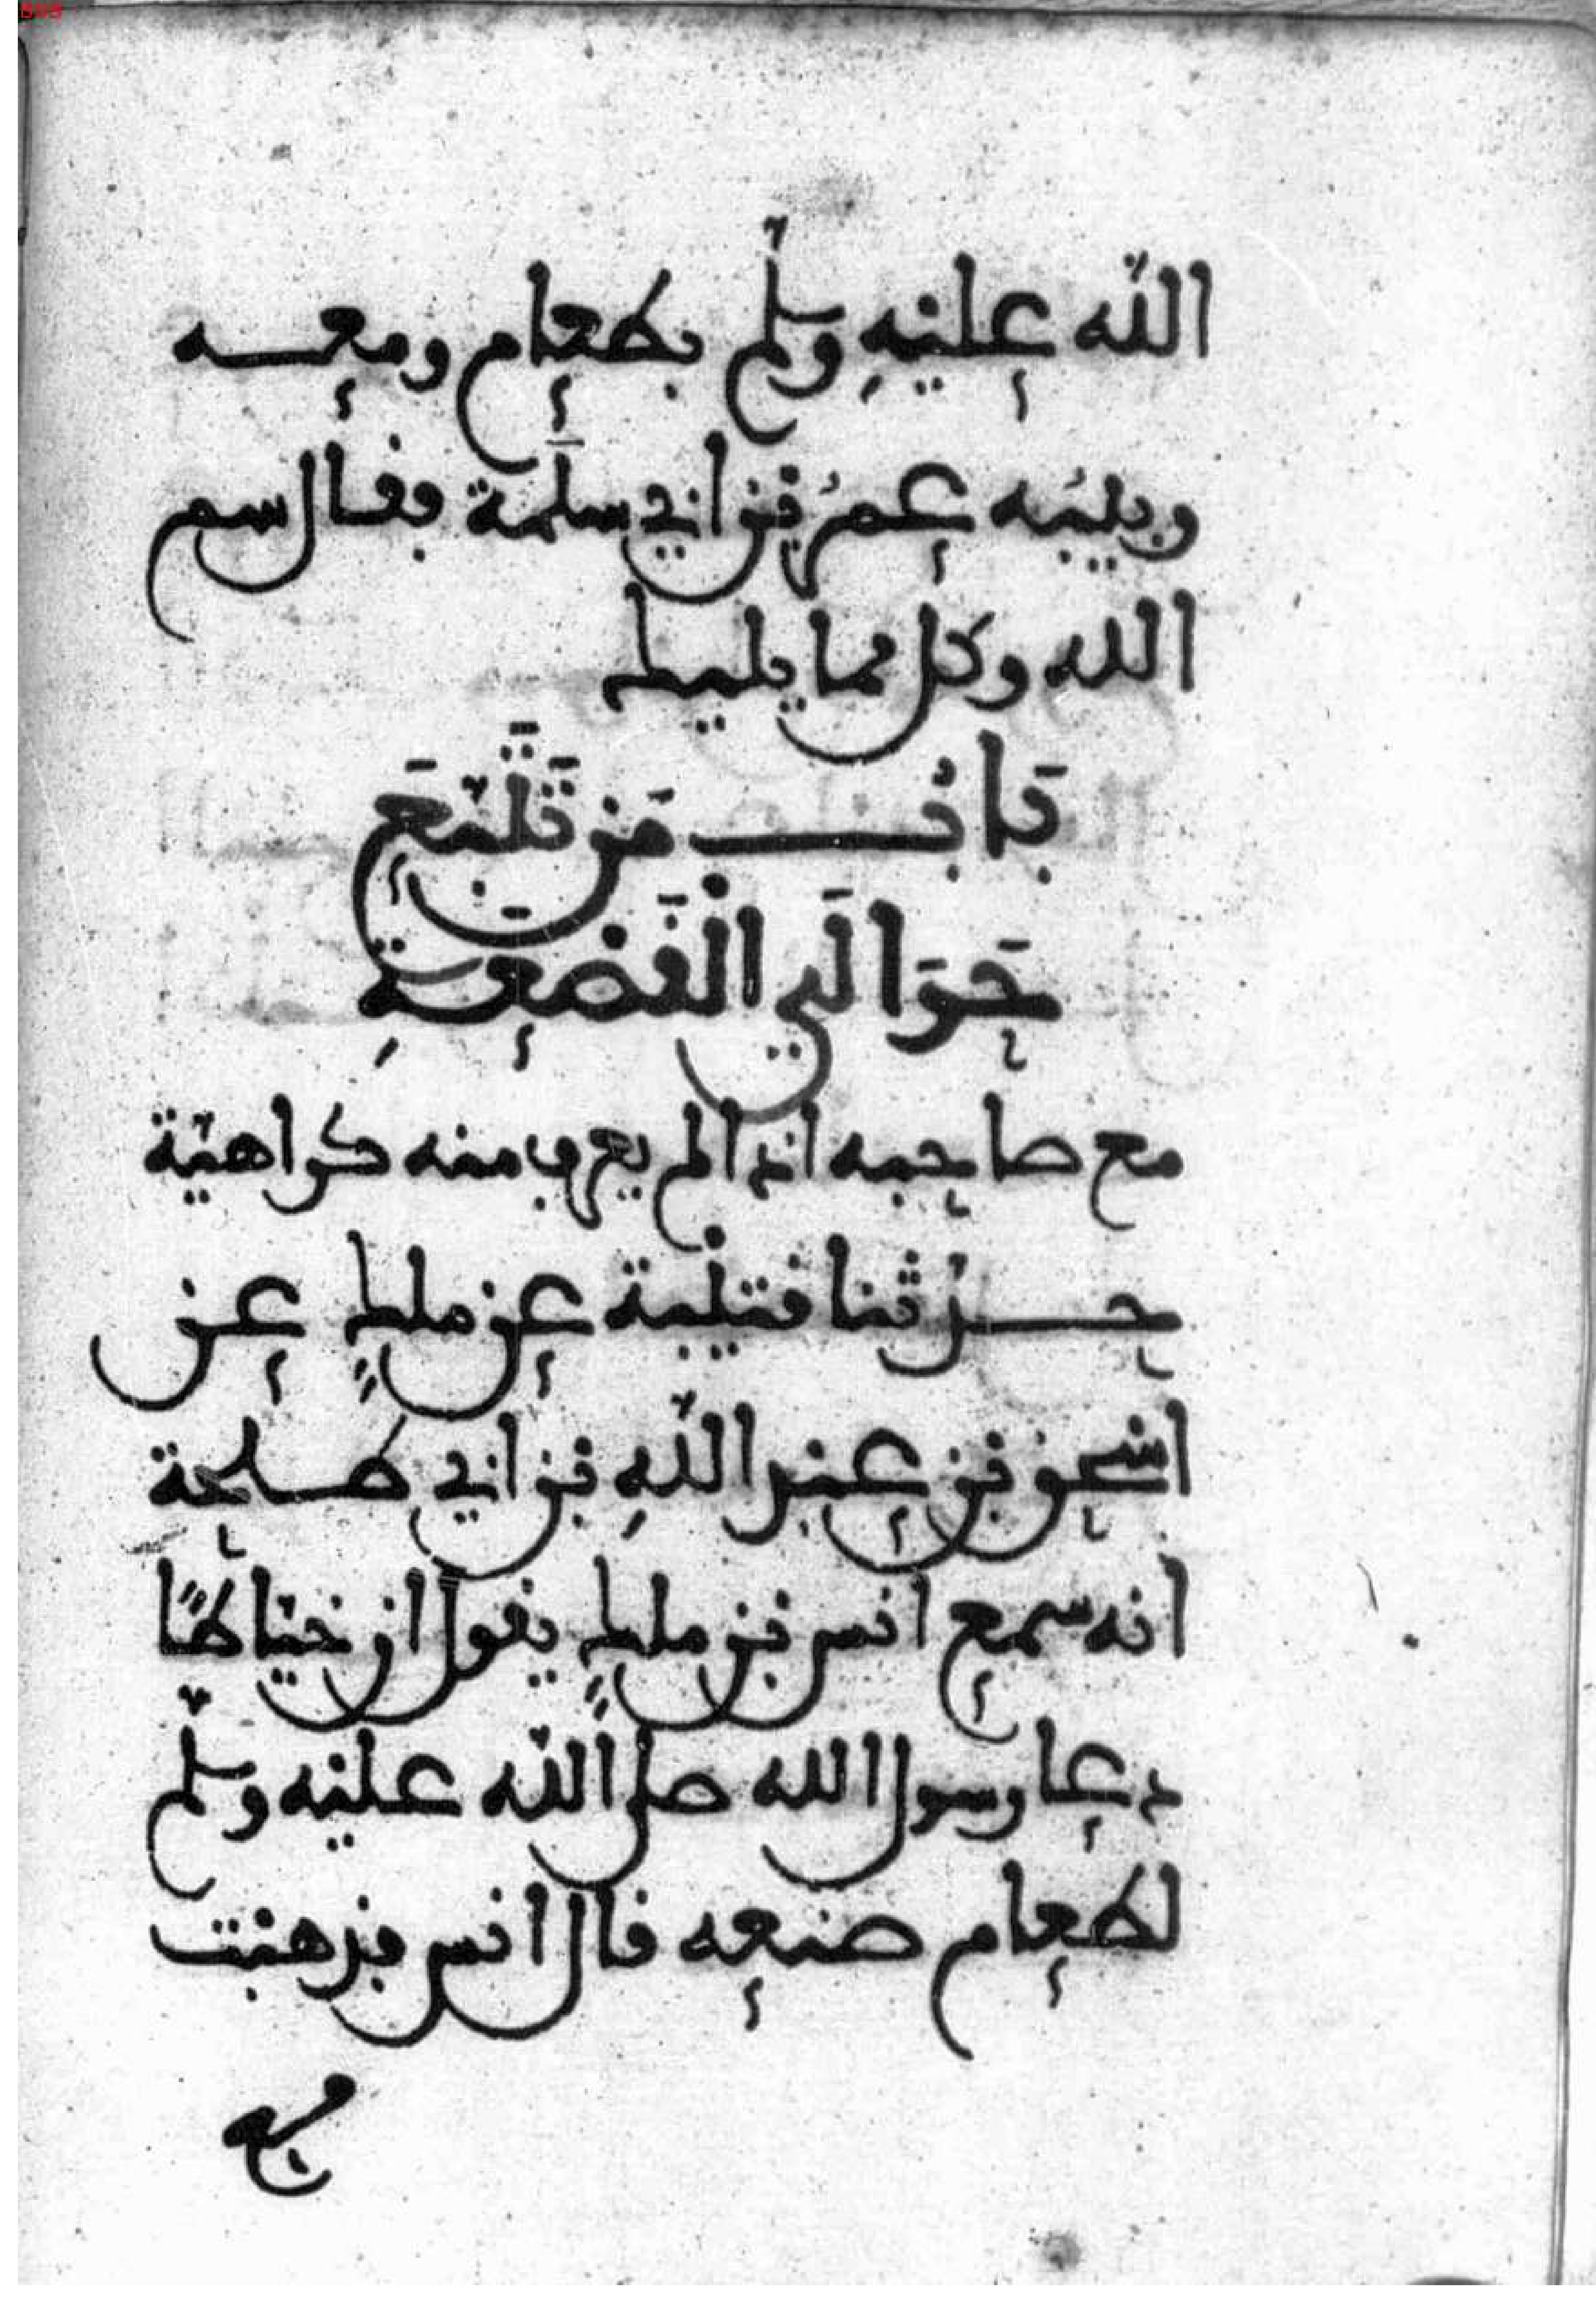 الله عليه وسلم بطعام ومعه
ربيبه عمر بن ابي سلمة فقال سم
الله وكل مما يليك
بَابُ مَن تَتَبَّعَ
حَوَالَيِ الْقَصْعَةِ
مع صاحبه اذا لم يعرف منه كراهية
حدثنا قتيبة عن ملكٍ عن
اسحق بن عبد اللهِ بن ابي طلحة
انه سمع انس بن ملكٍ يقول ان خياطًا
دعا رسول الله صلى الله عليه وسلم
لطعام صنعه قال انس فذهبت
مع